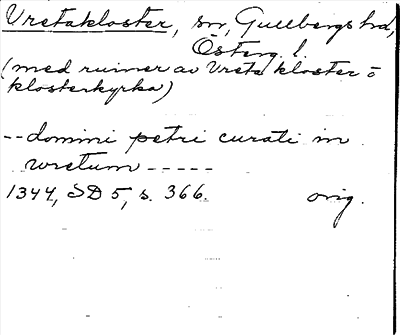 Vretakloster, sn, Gullbergs hd,
Österg. l.
(med ruiner av Vreta kloster o
klosterkyrka)
-- domini petri curati in
wretum -----
1344, SD 5, s. 366. orig.